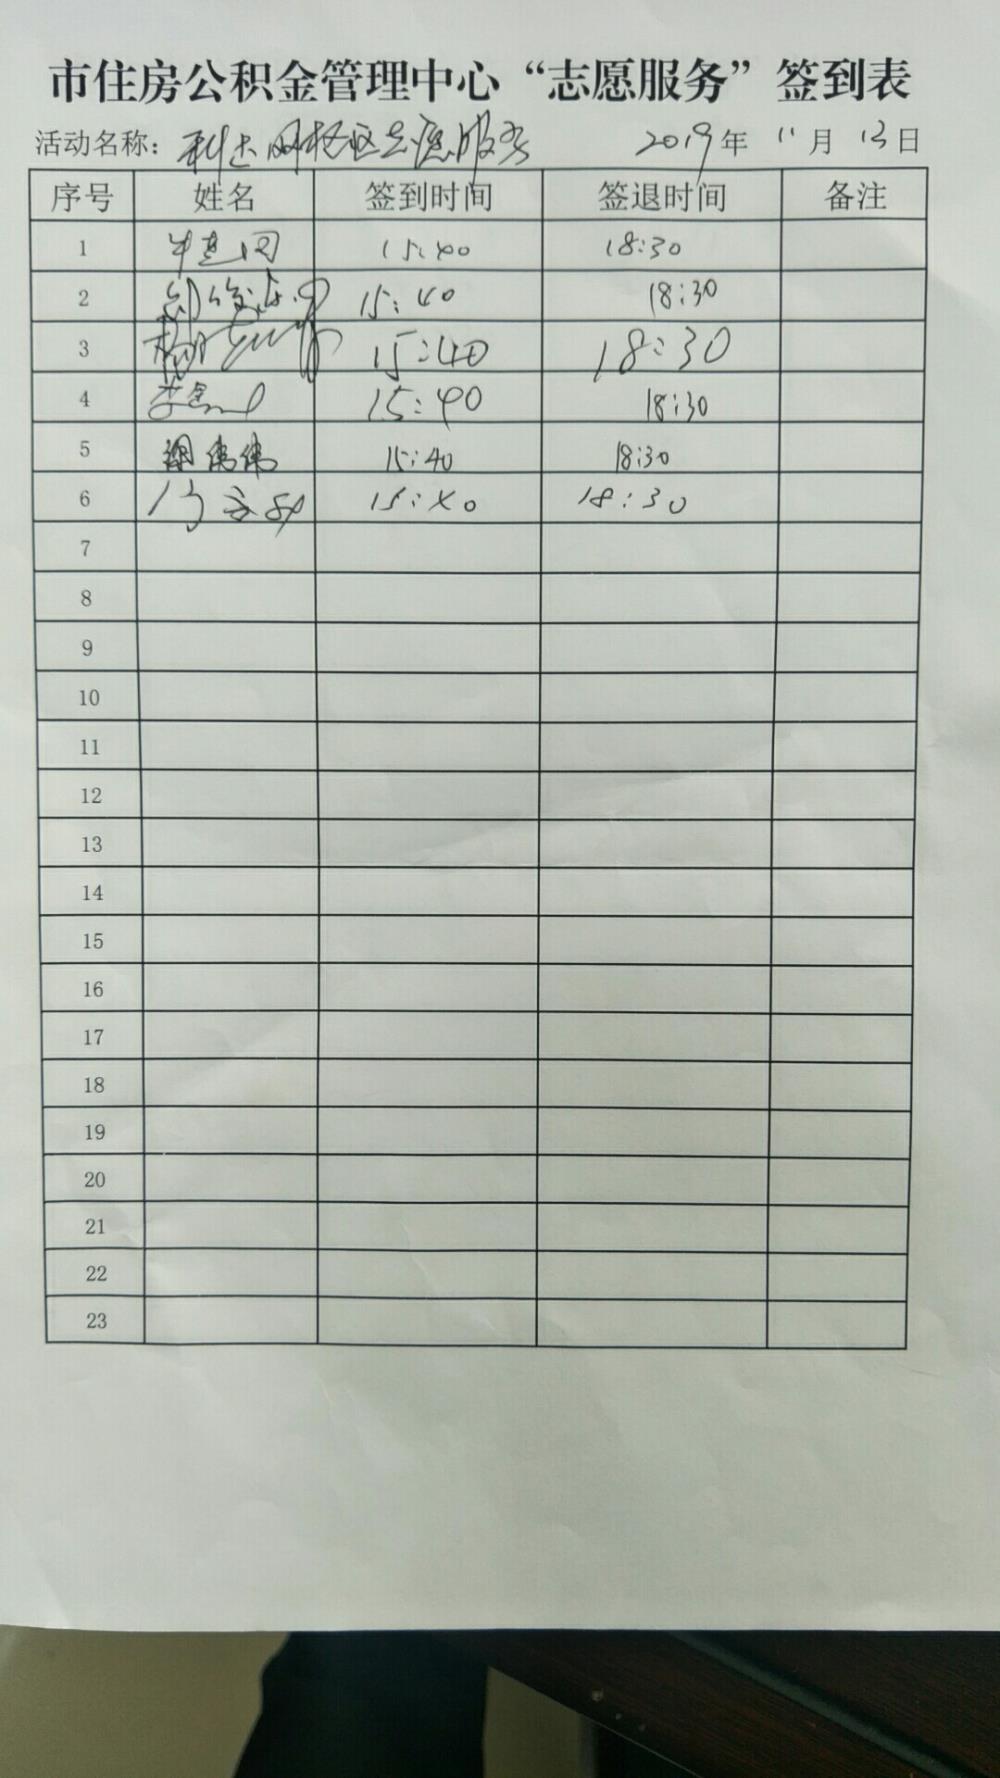 市住房公积金管理中心“志愿服务”签到表
活动名称：利达网格区志愿服务 2019年 11月 13日
序号 姓名 签到时间 签退时间 备注
1 15:40 18:30
2 15:40 18:30
3 杨 15:40 18:30
4 李 15:40 18:30
5 谢伟伟 15:40 18:30
6 15:40 18:30
7
8
9
10
11
12
13
14
15
16
17
18
19
20
21
22
23